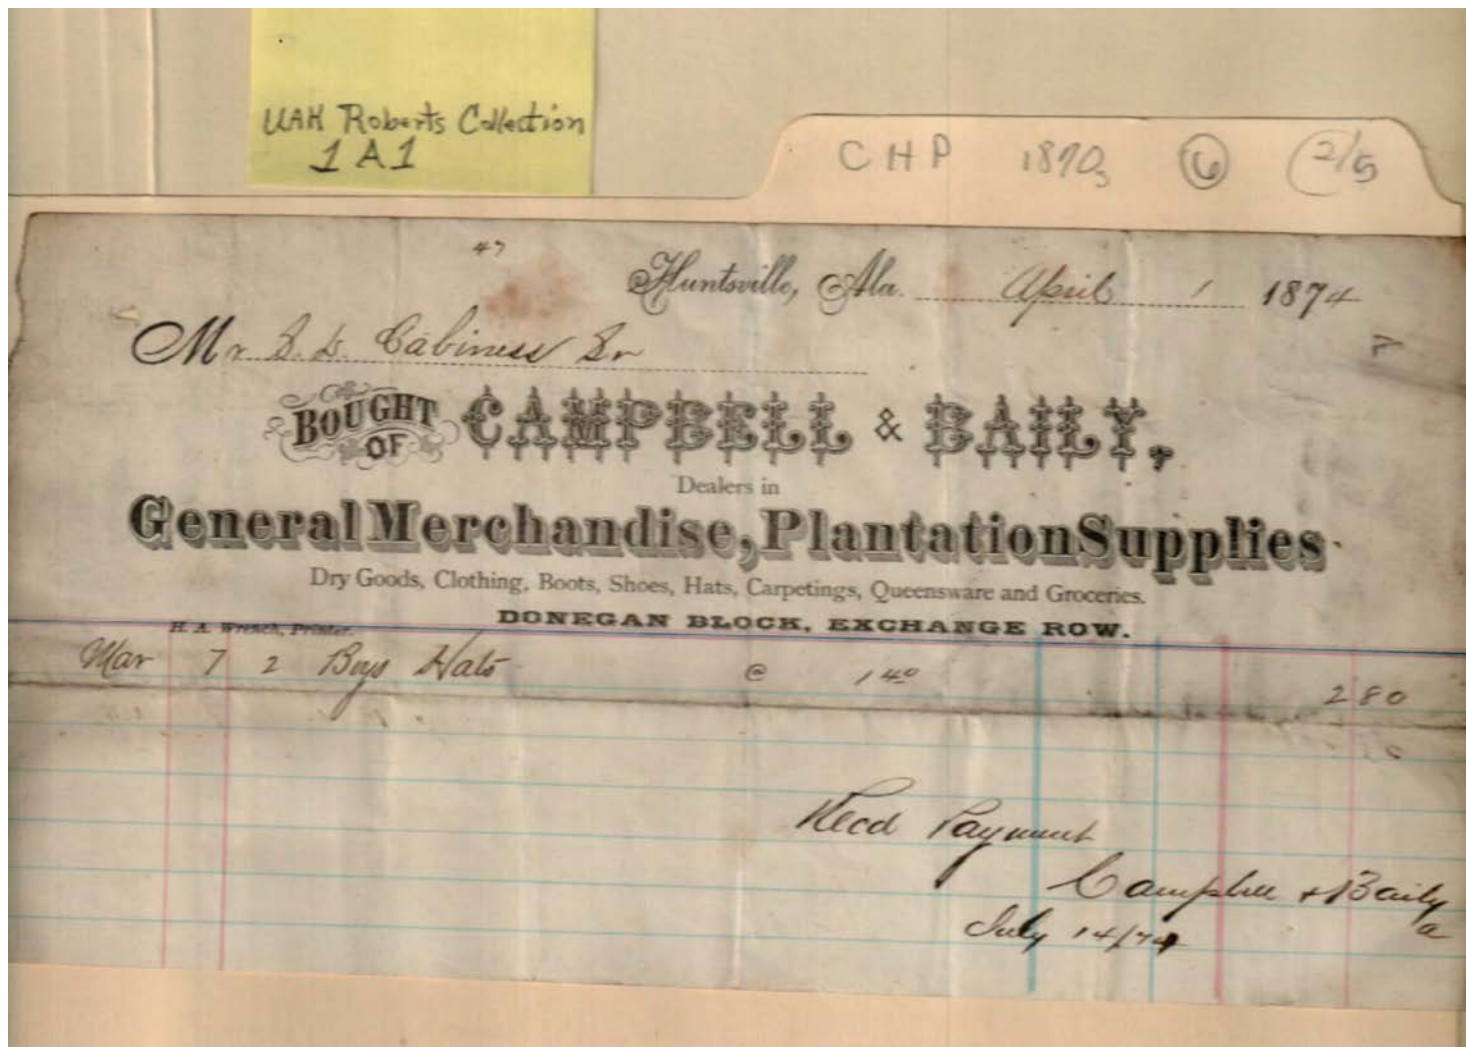 UAH Roberts Collection
1A1
CHP 1870s 6 2/5
47
Huntsville, Ala. April 1 1874
Mr S. D. Cabiness Sr
BOUGHT OF CAMPBELL & BAILY,
Dealers in
General Merchandise, Plantation Supplies
Dry Goods, Clothing, Boots, Shoes, Hats, Carpetings, Queensware and Groceries.
DONEGAN BLOCK, EXCHANGE ROW.
H. A. Wrench, Printer.
Mar 7 2 Boys Hats @ 1 40 2 80
Recd Payment
Campbell & Baily
July 14/74